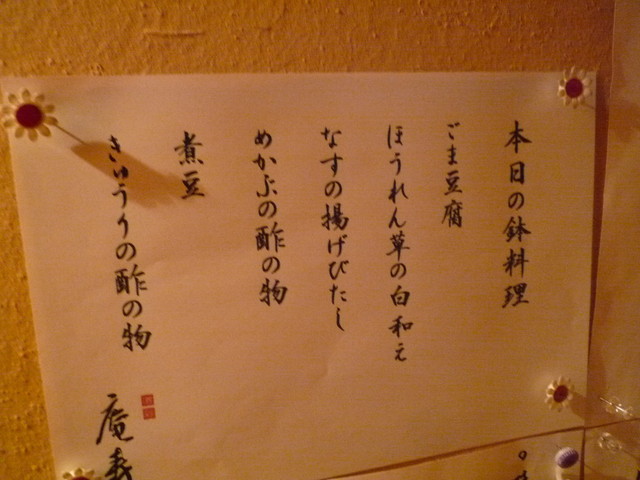 本日の鉢料理
ごま豆腐
ほうれん草の白和え
なすの揚げびたし
めかぶの酢の物
煮豆
きゅうりの酢の物
庵寿